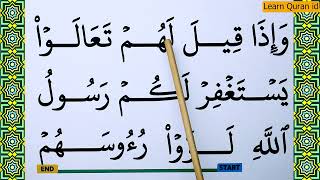 Learn Quran id
وَإِذَا قِيلَ لَهُمۡ تَعَالَوۡاْ
يَسۡتَغۡفِرۡ لَكُمۡ رَسُولُ
ٱللَّهِ لَوَّوۡاْ رُءُوسَهُمۡ
END START